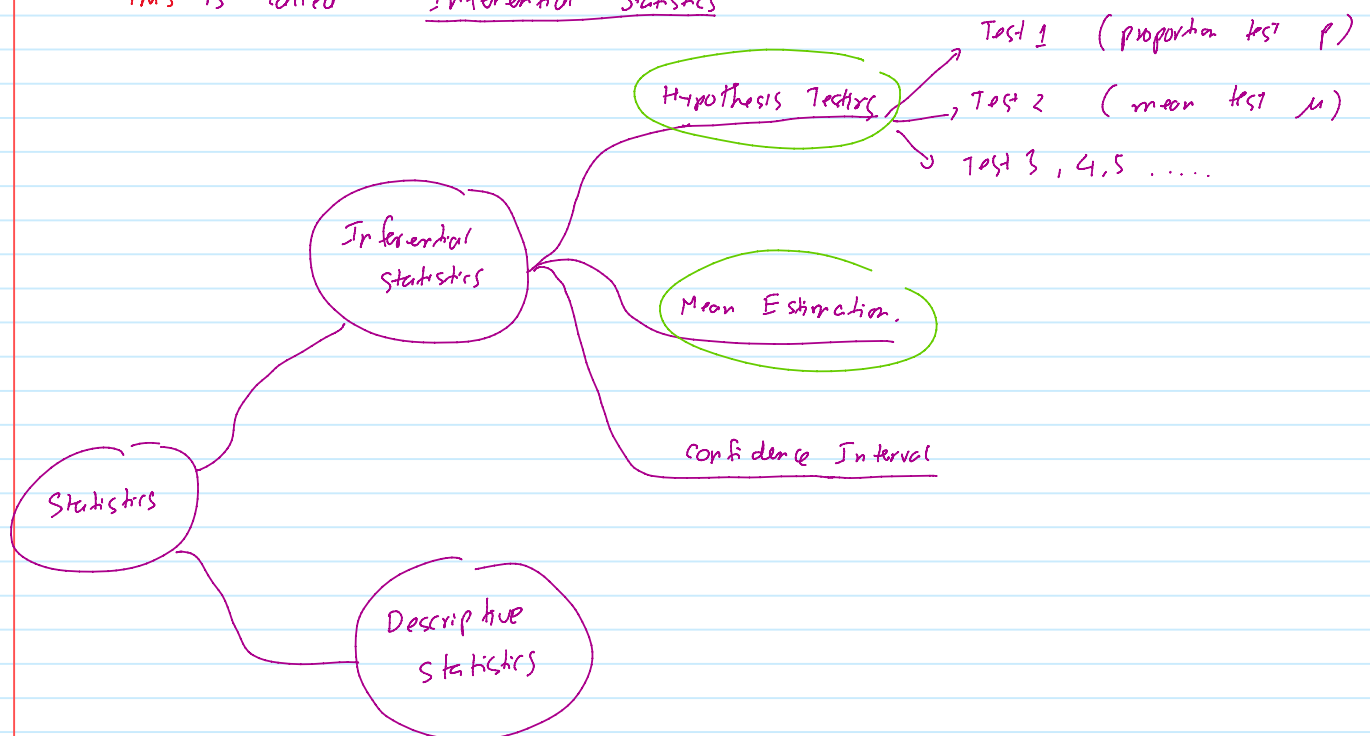 This is called Inferential Statistics
Test 1 (proportion test p)
Hypothesis Testing
Test 2 (mean test μ)
Test 3, 4, 5 .....
Inferential
Statistics
Mean Estimation.
Confidence Interval
Statistics
Descriptive
Statistics